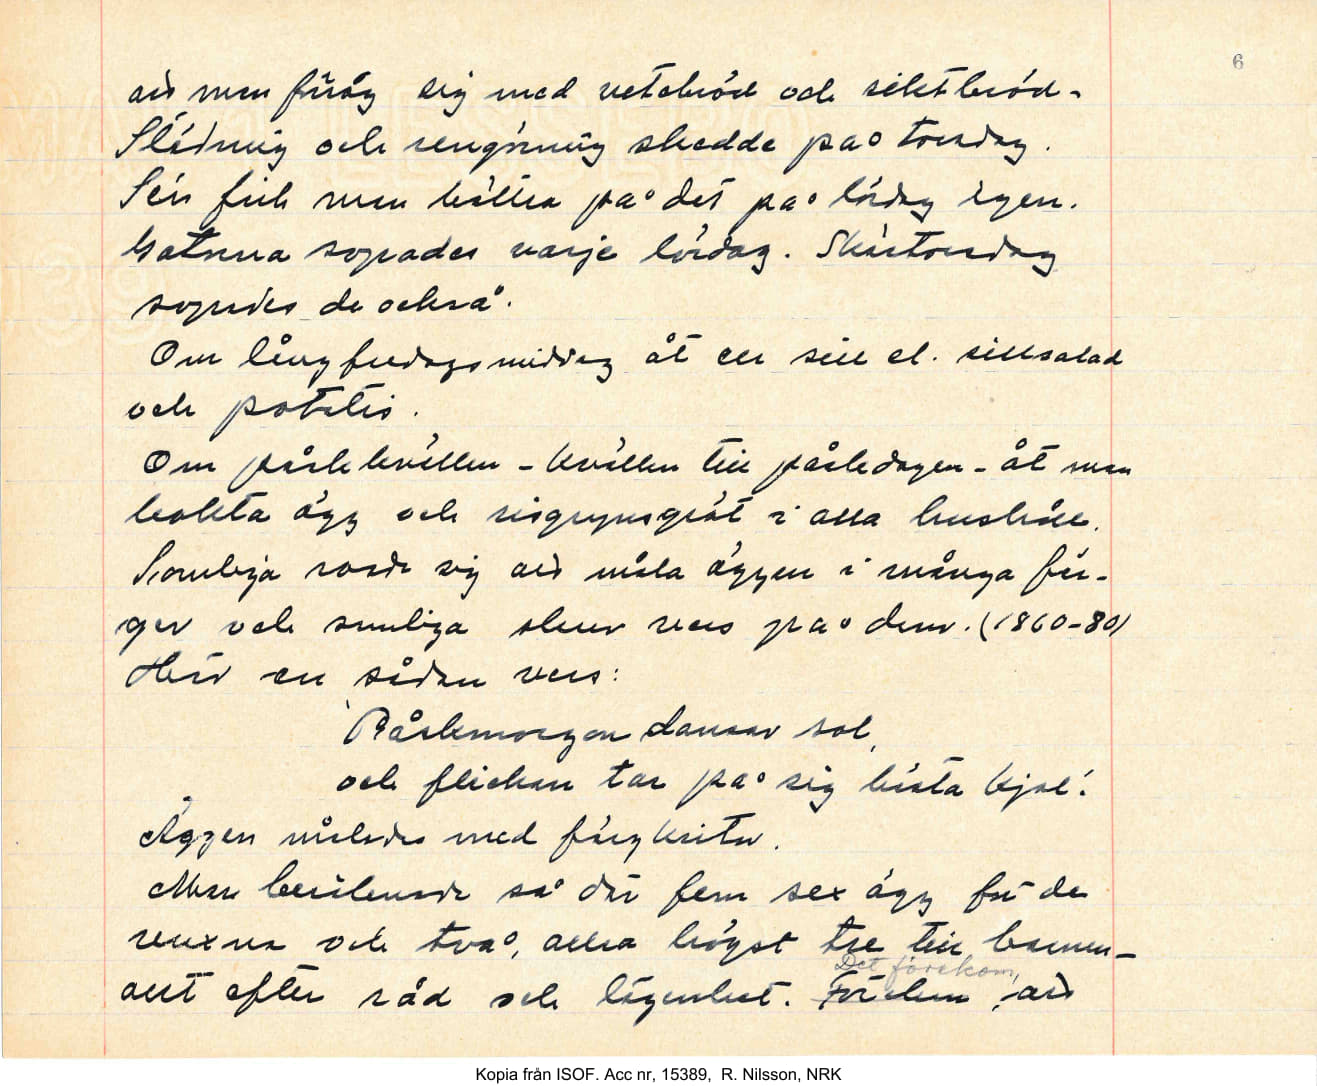 6
att man försåg sig med vetebröd och siktbröd.
Städning och rengöring skedde på torsdag.
Sen fick man hålla på det på lördag igen.
Gatorna sopades varje lördag. Skärtorsdag
sopades de också.
Om långfredagsmiddag åt en sill el. sillsalad
och potatis.
Om påskkvällen - kvällen till påskdagen - åt man
kokta ägg och risgrynsgröt i alla hushåll.
Somliga roade sig att måla äggen i många fär-
ger och somliga skrev vers på dem. (1860-80)
Här en sådan vers:
Påskemorgon dansar sol,
och flickan tar på sig bästa kjol!
Äggen målades med färgkritor.
Man beräknade så där fem sex ägg för de
vuxna och två, allra högst tre till barnen -
allt efter råd och lägenhet.
Det förekom,
att
Kopia från ISOF. Acc nr, 15389, R. Nilsson, NRK